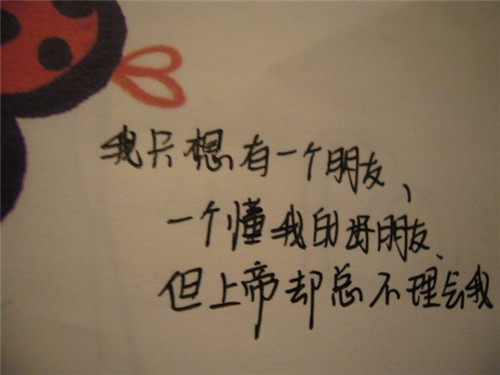 我只想有一个朋友、
一个懂我的好朋友、
但上帝却总不理会我